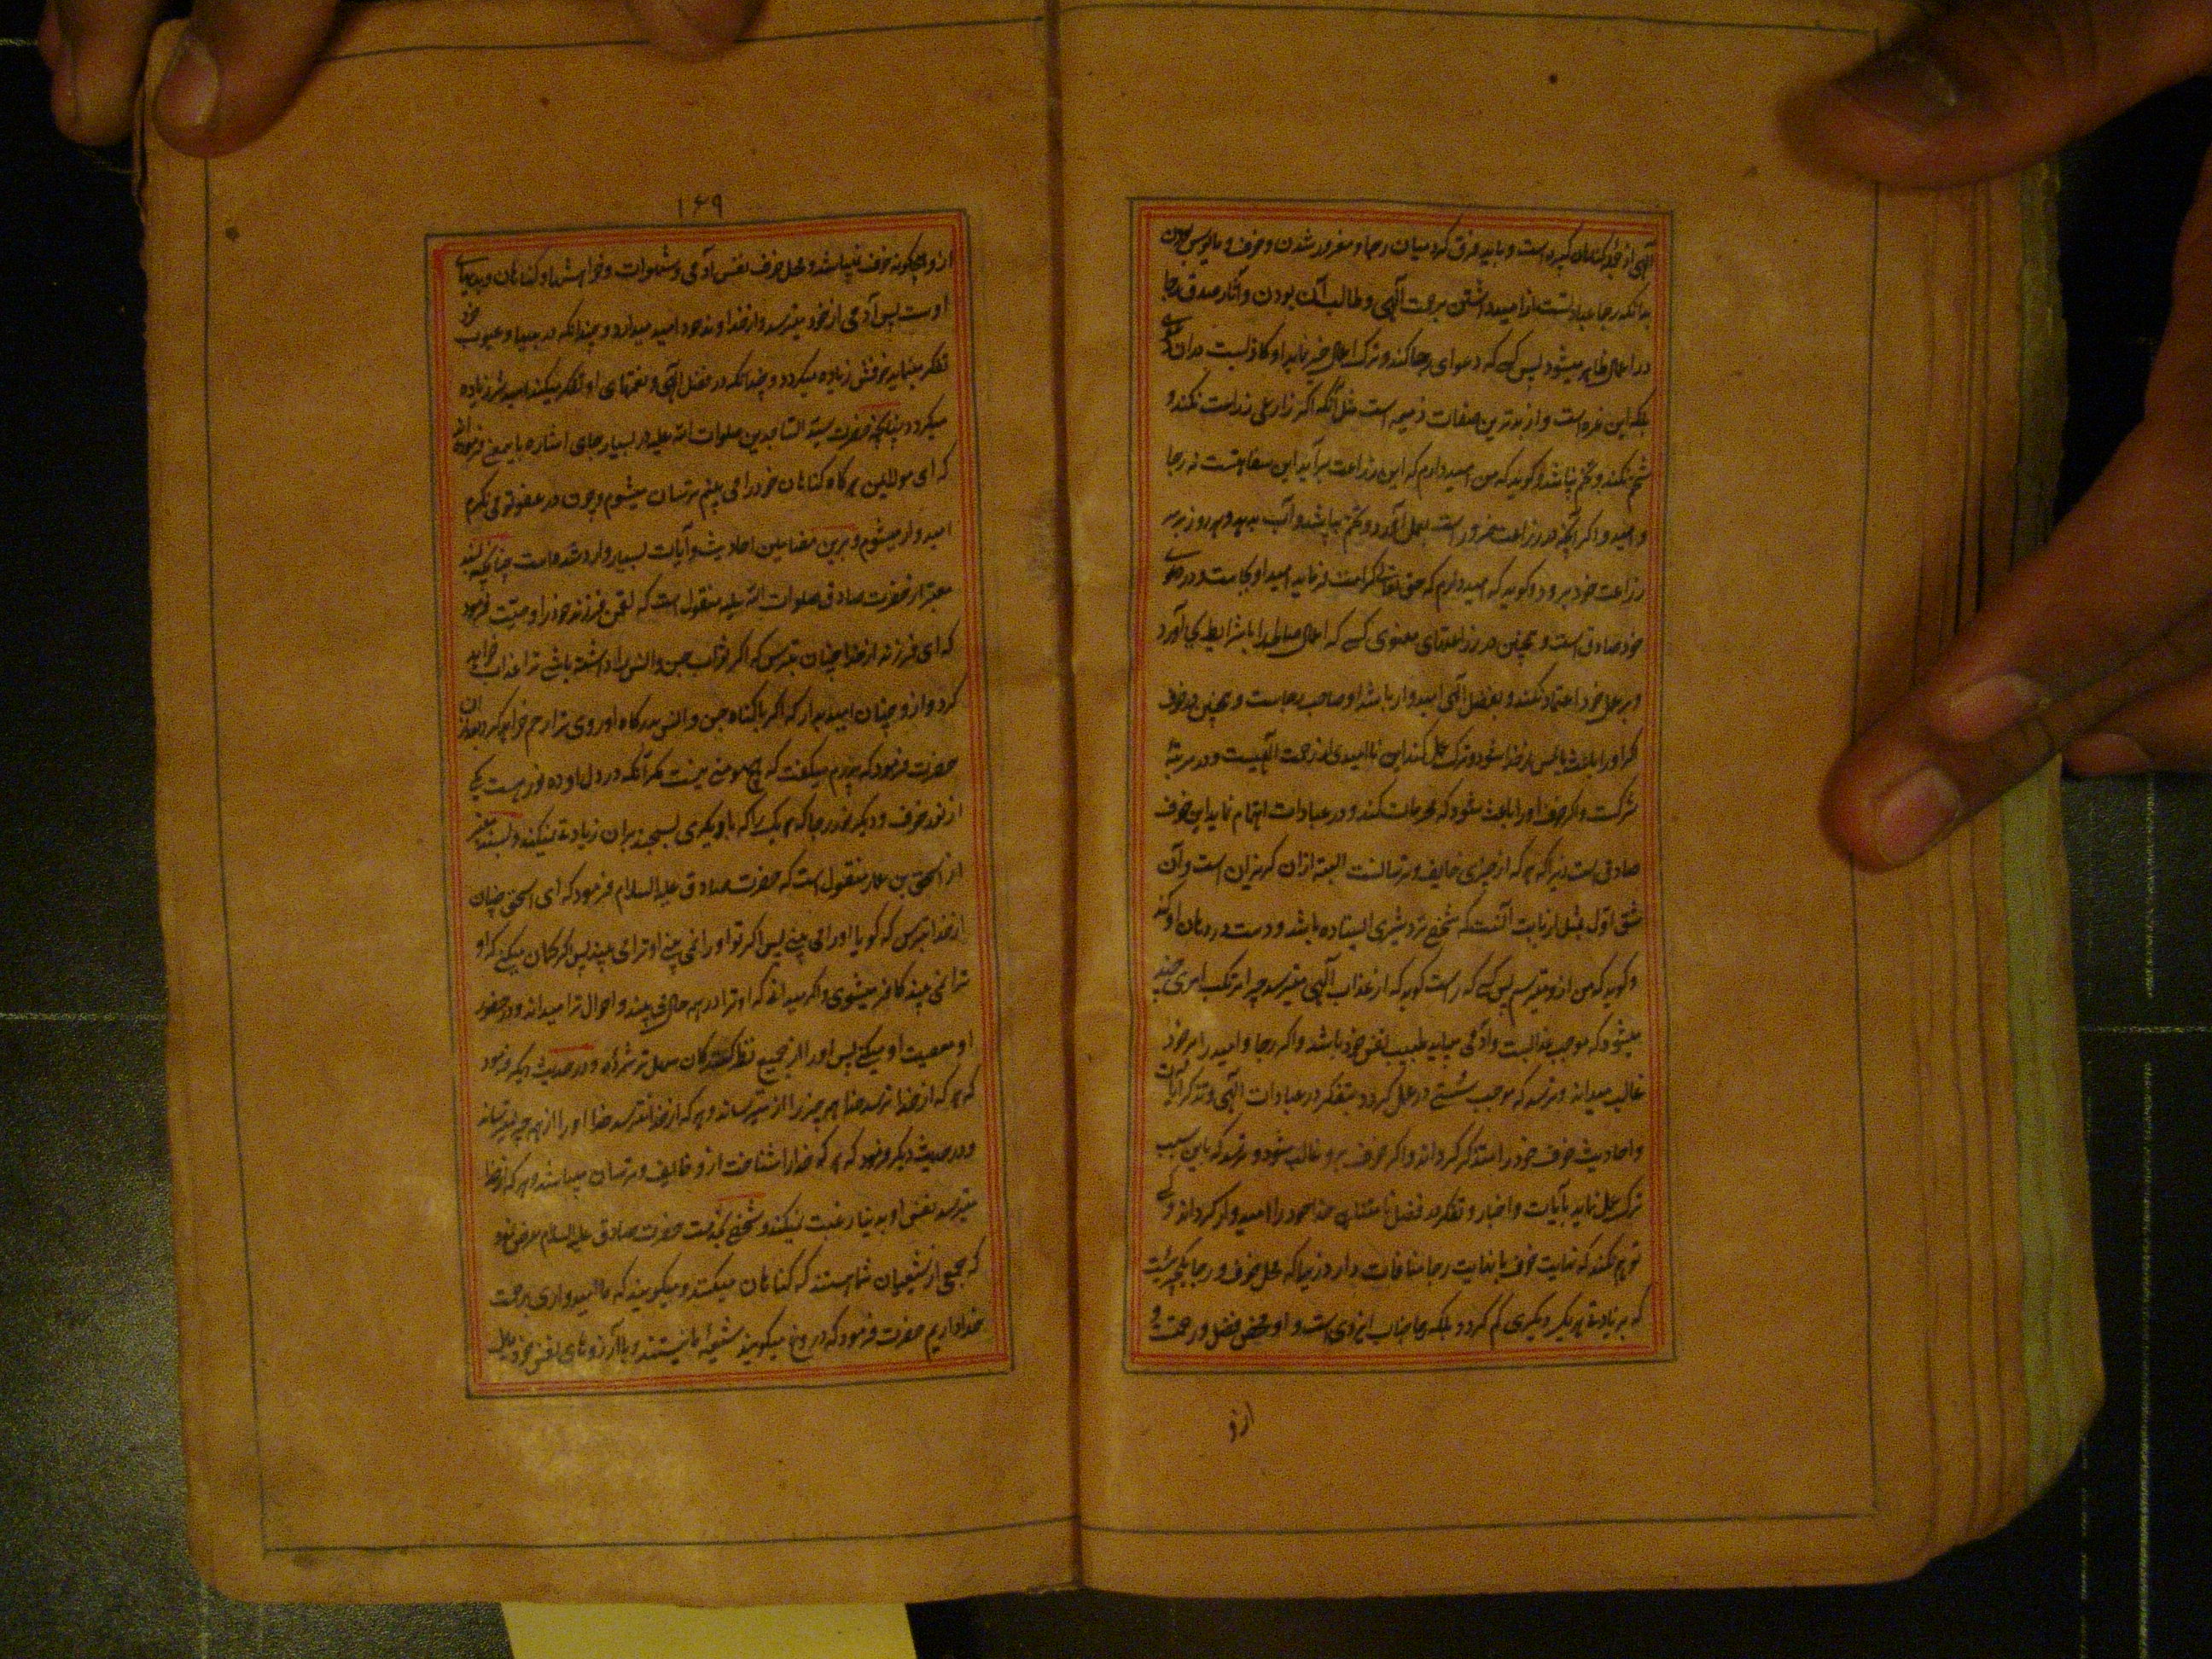 الهی از خود گناهان کبیره است و باید فرق کرد میان رجا و مغرور شدن و خوف و مایوس بودن
بدانکه رجا عبارتست از امید داشتن برحمت الهی و طالب آن بودن و آثار صدق رجا
در اعمال ظاهر میشود پس کسی که دعوای رجا کند و ترک اعمال خیر نماید او کاذبست در ان
بلکه این غره است و از بدترین صفات ذمیمه است مثل آنکه اگر زارعی زراعت نکند و
شخم نکند و تخم نپاشد و گوید که من امید دارم که این زراعت برآید این سفاهتست نه رجا
و امید و اگر آنچه در زراعت ضرور است بعمل آورد و تخم بپاشد و آب بدهد و هر روز بر سر
زراعت خود برود و گوید که امید دارم که حق تعالی کرامت فرماید امید او بجاست و در دعوی
خود صادق است و همچنین در زراعتهای معنوی کسی که اعمال صالحه را با شرایط بجا آورد
و بر عمل خود اعتماد نکند و بفضل الهی امیدوار باشد او صاحب رجاست و همچنین در خوف
گر او را باعث یأس از خدا شود و ترک عمل کند این ناامیدی از رحمت الهیست و در مرتبهٔ
شرکست و اگر خوف او را باعث شود که ترک محرمات کند و در عبادات اهتمام نماید این خوف
صادق است زیرا که هر که از چیزی خایف و ترسانست البته ازان گریزان است و آن
شق اول بمثل ازبابت آنست که شخصی نزد شیری ایستاده باشد و دست در دهان او کند
و گوید که من ازو میترسم پس کسی که راست گوید که از عذاب الهی میترسد چرا مرتکب امری چند
میشود که موجب عذابست و آدمی میباید طبیب نفس خود باشد و اگر رجا و امید را بر خود
غالب میداند و ترسد که موجب سستی در عمل گردد بتفکر در عبادات الهی و تذکر آیات
و احادیث خوف خود را متذکر گرداند و اگر خوف برو غالب شود و ترسد که باین سبب
ترک عمل نماید بآیات و اخبار و تفکر در فضل نامتناهی خدا خود را امیدوار گرداند و کسی
توهم نکند که نهایت خوف با نهایت رجا منافات دارد زیرا که محل خوف و رجا یکچیز نیست
که بزیادتی هر یک دیگری کم گردد بلکه رجا جناب ایزدی است و او محض فضل و رحمت و
ازو
۱۶۹
ازو هیچگونه خوف نمیباشد و محل خوف نفس آدمی و شهوات و خواهشها و گناهان و بدیهای
اوست پس آدمی از خود میترسد و از خداوند خود امید میدارد و چندانکه در بدیها و عیوب خود
تفکر مینماید خوفش زیاده میگردد و چندانکه در فضل الهی و نعمتهای او تفکر میکند امیدش زیاده
میگردد چنانچه حضرت سید الساجدین صلوات الله علیه در بسیار جای اشاره باینمعنی فرموده اند
که ای مولای من هر گاه گناهان خود را می بینم ترسان میشوم و چون در عفو تو می نگرم
امیدوار میشوم و برین مضامین احادیث و آیات بسیار وارد شده است چنانچه بسند
معتبر از حضرت صادق صلوات الله علیه منقول است که لقمن فرزند خود را وصیت فرمود
که ای فرزند از خدا چنان بترس که اگر ثواب جن و انس را داشته باشی ترا عذاب خواهد
کرد و ازو چنان امید بدار که اگر با گناه جن و انس بدرگاه او روی ترا رحم خواهد کرد بعد ازان
حضرت فرمود که پدرم میگفت که هیچ مومنی نیست مگر آنکه در دل او دو نور هست یکی
از نور خوف و دیگر نور رجا که هر یک را که با دیگری بسنجند بران زیادتی نمیکند و بسند معتبر
از اسحق بن عمار منقول است که حضرت صادق علیه السلام فرمود که ای اسحق چنان
از خدا بترس که گویا او را می بینی پس اگر تو او را نمی بینی او ترا می بیند پس اگر گمان میکنی که او
ترا نمی بیند کافر میشوی و اگر میدانی که او ترا در همه حال می بیند و احوال ترا میداند و در حضور
او معصیت او میکنی پس او را از جمیع نظر کنندگان سهل تر شمرده و در حدیث دیگر فرمود
که هر که از خدا ترسد خدا هر چیز را ازو میترساند و هر که از خدا نترسد خدا او را از همه چیز میترساند
و در حدیث دیگر فرمود که هر که خدا را شناخت ازو خایف و ترسان میباشد و هر که از خدا
میترسد نفس او بدنیا رغبت نمیکند و شخصی بخدمت حضرت صادق علیه السلام عرض نمود
که جمعی از شیعیان شما هستند که گناهان میکنند و میگویند که ما امیدواری برحمت
خدا داریم حضرت فرمود که دروغ میگویند شیعهٔ ما نیستند و با آرزوهای نفس خود مایل